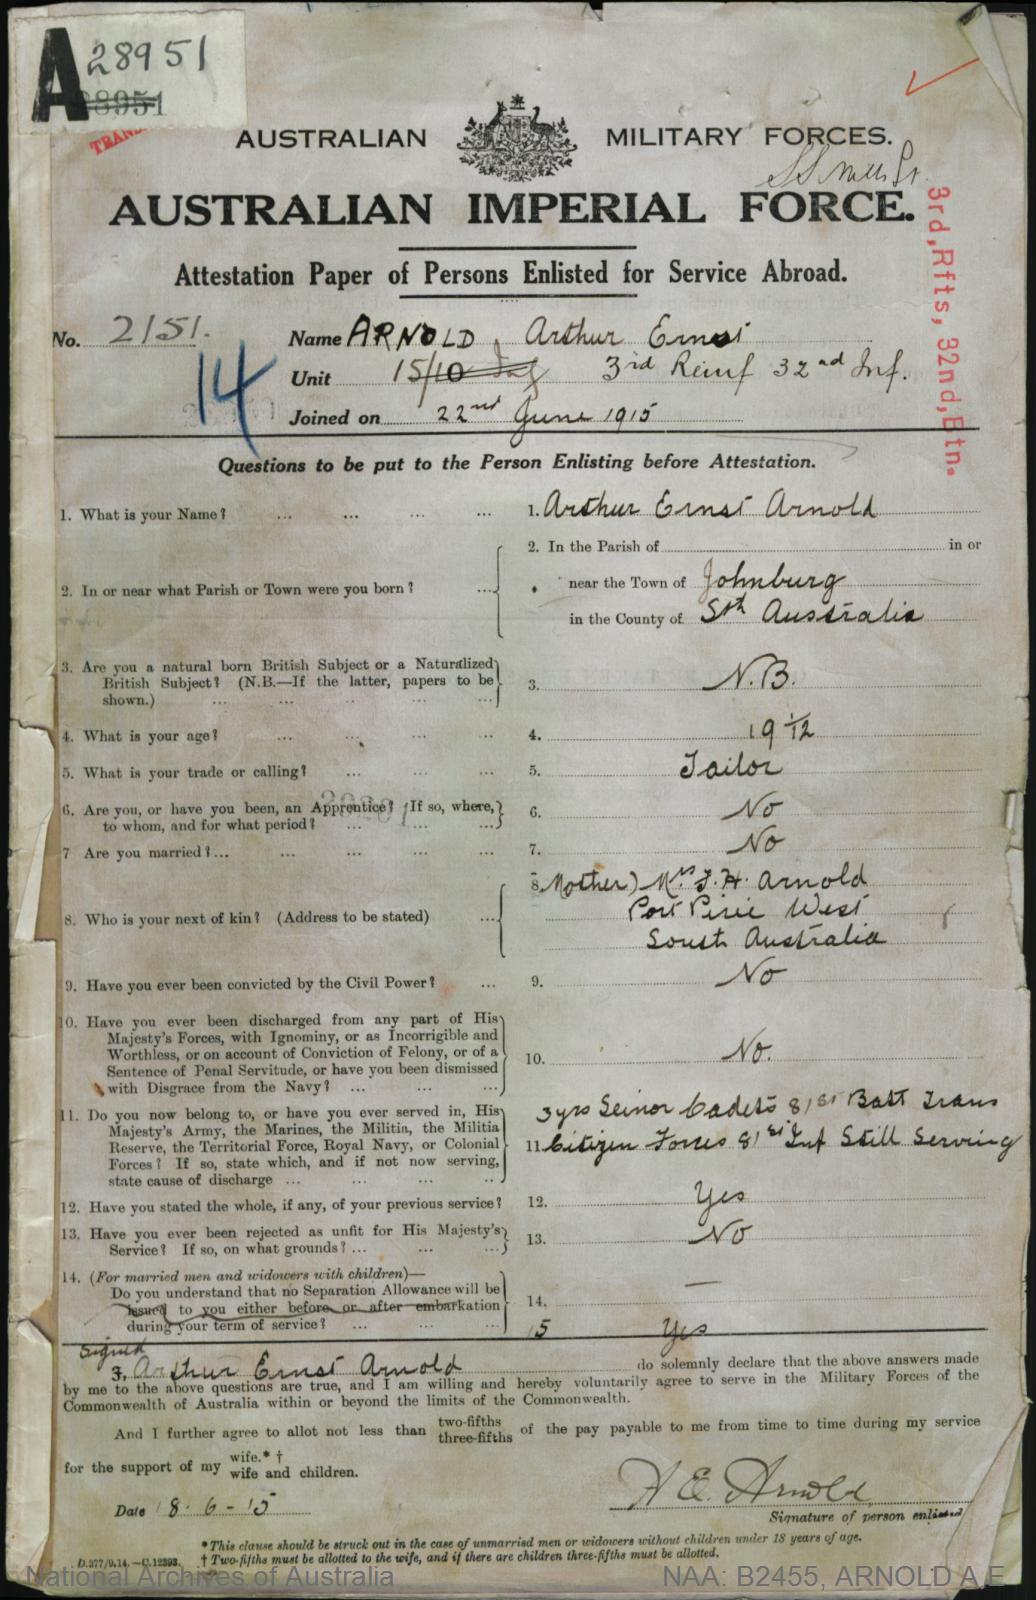 A 28951
28951
AUSTRALIAN MILITARY FORCES.
AUSTRALIAN IMPERIAL FORCE.
Attestation Paper of Persons Enlisted for Service Abroad.
3rd, Rfts, 32nd, Btn.
No. 2151. Name ARNOLD, Arthur Ernest
14 Unit 15/10 Inf 3rd Reinf 32nd Inf.
Joined on 22nd June 1915
Questions to be put to the Person Enlisting before Attestation.
1. What is your Name? ... ... ... ... 1. Arthur Ernst Arnold
2. In the Parish of in or
2. In or near what Parish or Town were you born? ... near the Town of Johnburg
in the County of Sth Australia
3. Are you a natural born British Subject or a Naturalized
British Subject? (N.B.—If the latter, papers to be 3. N.B.
shown.) ... ... ... ... ...
4. What is your age? ... ... ... ... 4. 19 1/12
5. What is your trade or calling? ... ... ... 5. Tailor
6. Are you, or have you been, an Apprentice? If so, where, 6. No
to whom, and for what period? ... ... ...
7 Are you married?... ... ... ... ... 7. No
8. Mother) Mrs F. H. Arnold
8. Who is your next of kin? (Address to be stated) ... Port Pirie West
South Australia
9. Have you ever been convicted by the Civil Power? ... 9. No
10. Have you ever been discharged from any part of His
Majesty's Forces, with Ignominy, or as Incorrigible and
Worthless, or on account of Conviction of Felony, or of a 10. No.
Sentence of Penal Servitude, or have you been dismissed
with Disgrace from the Navy? ... ... ...
11. Do you now belong to, or have you ever served in, His 3 yrs Seinor Cadets 81st Batt Trans
Majesty's Army, the Marines, the Militia, the Militia
Reserve, the Territorial Force, Royal Navy, or Colonial 11. Citizen Forces 81st Inf Still Serving
Forces? If so, state which, and if not now serving,
state cause of discharge ... ... ... ..
12. Have you stated the whole, if any, of your previous service? 12. Yes
13. Have you ever been rejected as unfit for His Majesty's 13. No
Service? If so, on what grounds? ... ... ...
14. (For married men and widowers with children)—
Do you understand that no Separation Allowance will be 14. —
issued to you either before or after embarkation
during your term of service? ... ... ... 15 Yes
Signed
I, Arthur Ernst Arnold do solemnly declare that the above answers made
by me to the above questions are true, and I am willing and hereby voluntarily agree to serve in the Military Forces of the
Commonwealth of Australia within or beyond the limits of the Commonwealth.
And I further agree to allot not less than two-fifths three-fifths of the pay payable to me from time to time during my service
for the support of my wife.* † wife and children.
A E. Arnold
Date 18. 6 - 15
Signature of person enlisted
* This clause should be struck out in the case of unmarried men or widowers without children under 18 years of age.
† Two-fifths must be allotted to the wife, and if there are children three-fifths must be allotted.
D.377/9.14.—C.12393.
National Archives of Australia NAA: B2455, ARNOLD A E